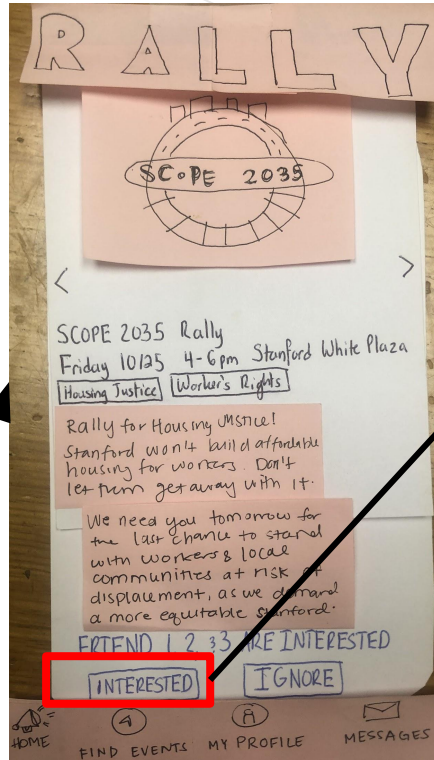 RALLY
SCOPE 2035
SCOPE 2035 Rally
Friday 10/25 4-6pm Stanford White Plaza
Housing Justice Worker's Rights
Rally for Housing Justice!
Stanford won't build affordable
housing for workers. Don't
let them get away with it.
We need you tomorrow for
the last chance to stand
with workers & local
communities at risk of
displacement, as we demand
a more equitable Stanford.
FRIEND 1, 2, &3 ARE INTERESTED
INTERESTED IGNORE
HOME FIND EVENTS MY PROFILE MESSAGES